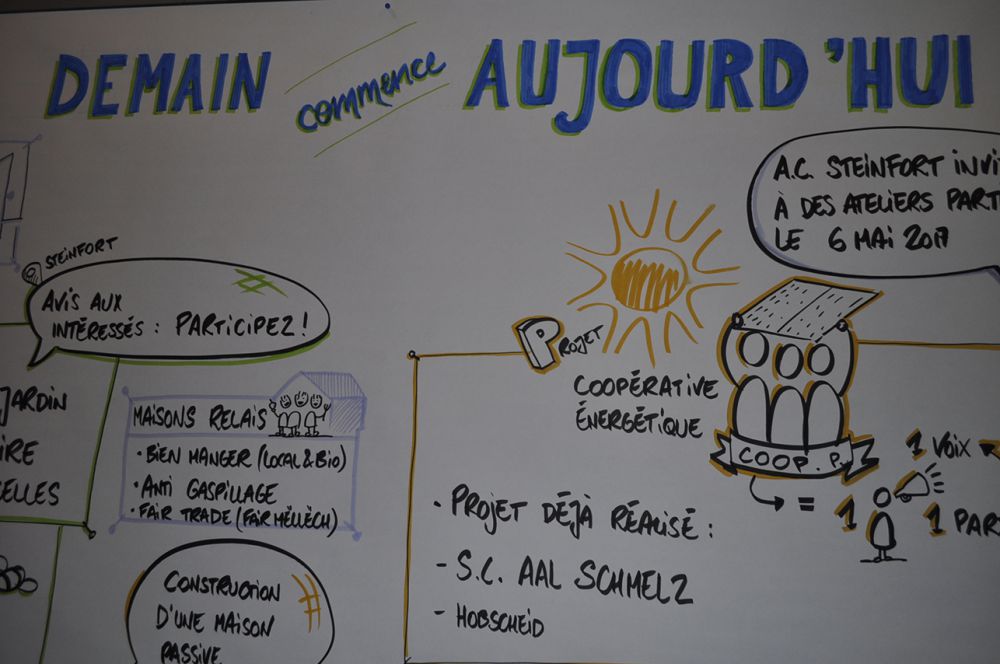 DEMAIN commence AUJOURD'HUI
A.C. STEINFORT INVI
À DES ATELIERS PART
LE 6 MAI 2017
STEINFORT
AVIS AUX
INTÉRESSÉS : PARTICIPEZ !
JARDIN
IRE
ELLES
MAISONS RELAIS
• BIEN MANGER (LOCAL & BIO)
• ANTI GASPILLAGE
• FAIR TRADE (FAIR MËLLËCH)
CONSTRUCTION
D'UNE MAISON
PASSIVE
PROJET
COOPÉRATIVE
ÉNERGÉTIQUE
COOP. P.
= 1
1 VOIX
1 PAR
• PROJET DÉJÀ RÉALISÉ :
- S.C. AAL SCHMELZ
- HOBSCHEID